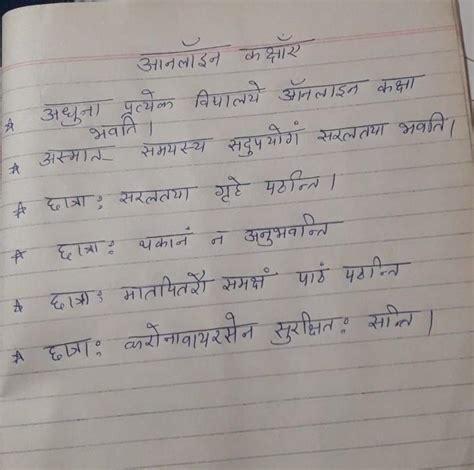 आनलॉइन कक्षाऐं
* अधुना प्रत्येक विद्यालये ऑनलाइन कक्षा
भवति।
* अस्मात समयस्य सदुपयोगं सरलतया भवति।
* छात्रा: सरलतया गृहे पठन्ति।
* छात्रा: थकानं न अनुभवन्ति
* छात्रा: मातपितरौ समक्षं पाठं पठन्ति
* छात्रा: करोनावायरसेन सुरक्षित: सन्ति।